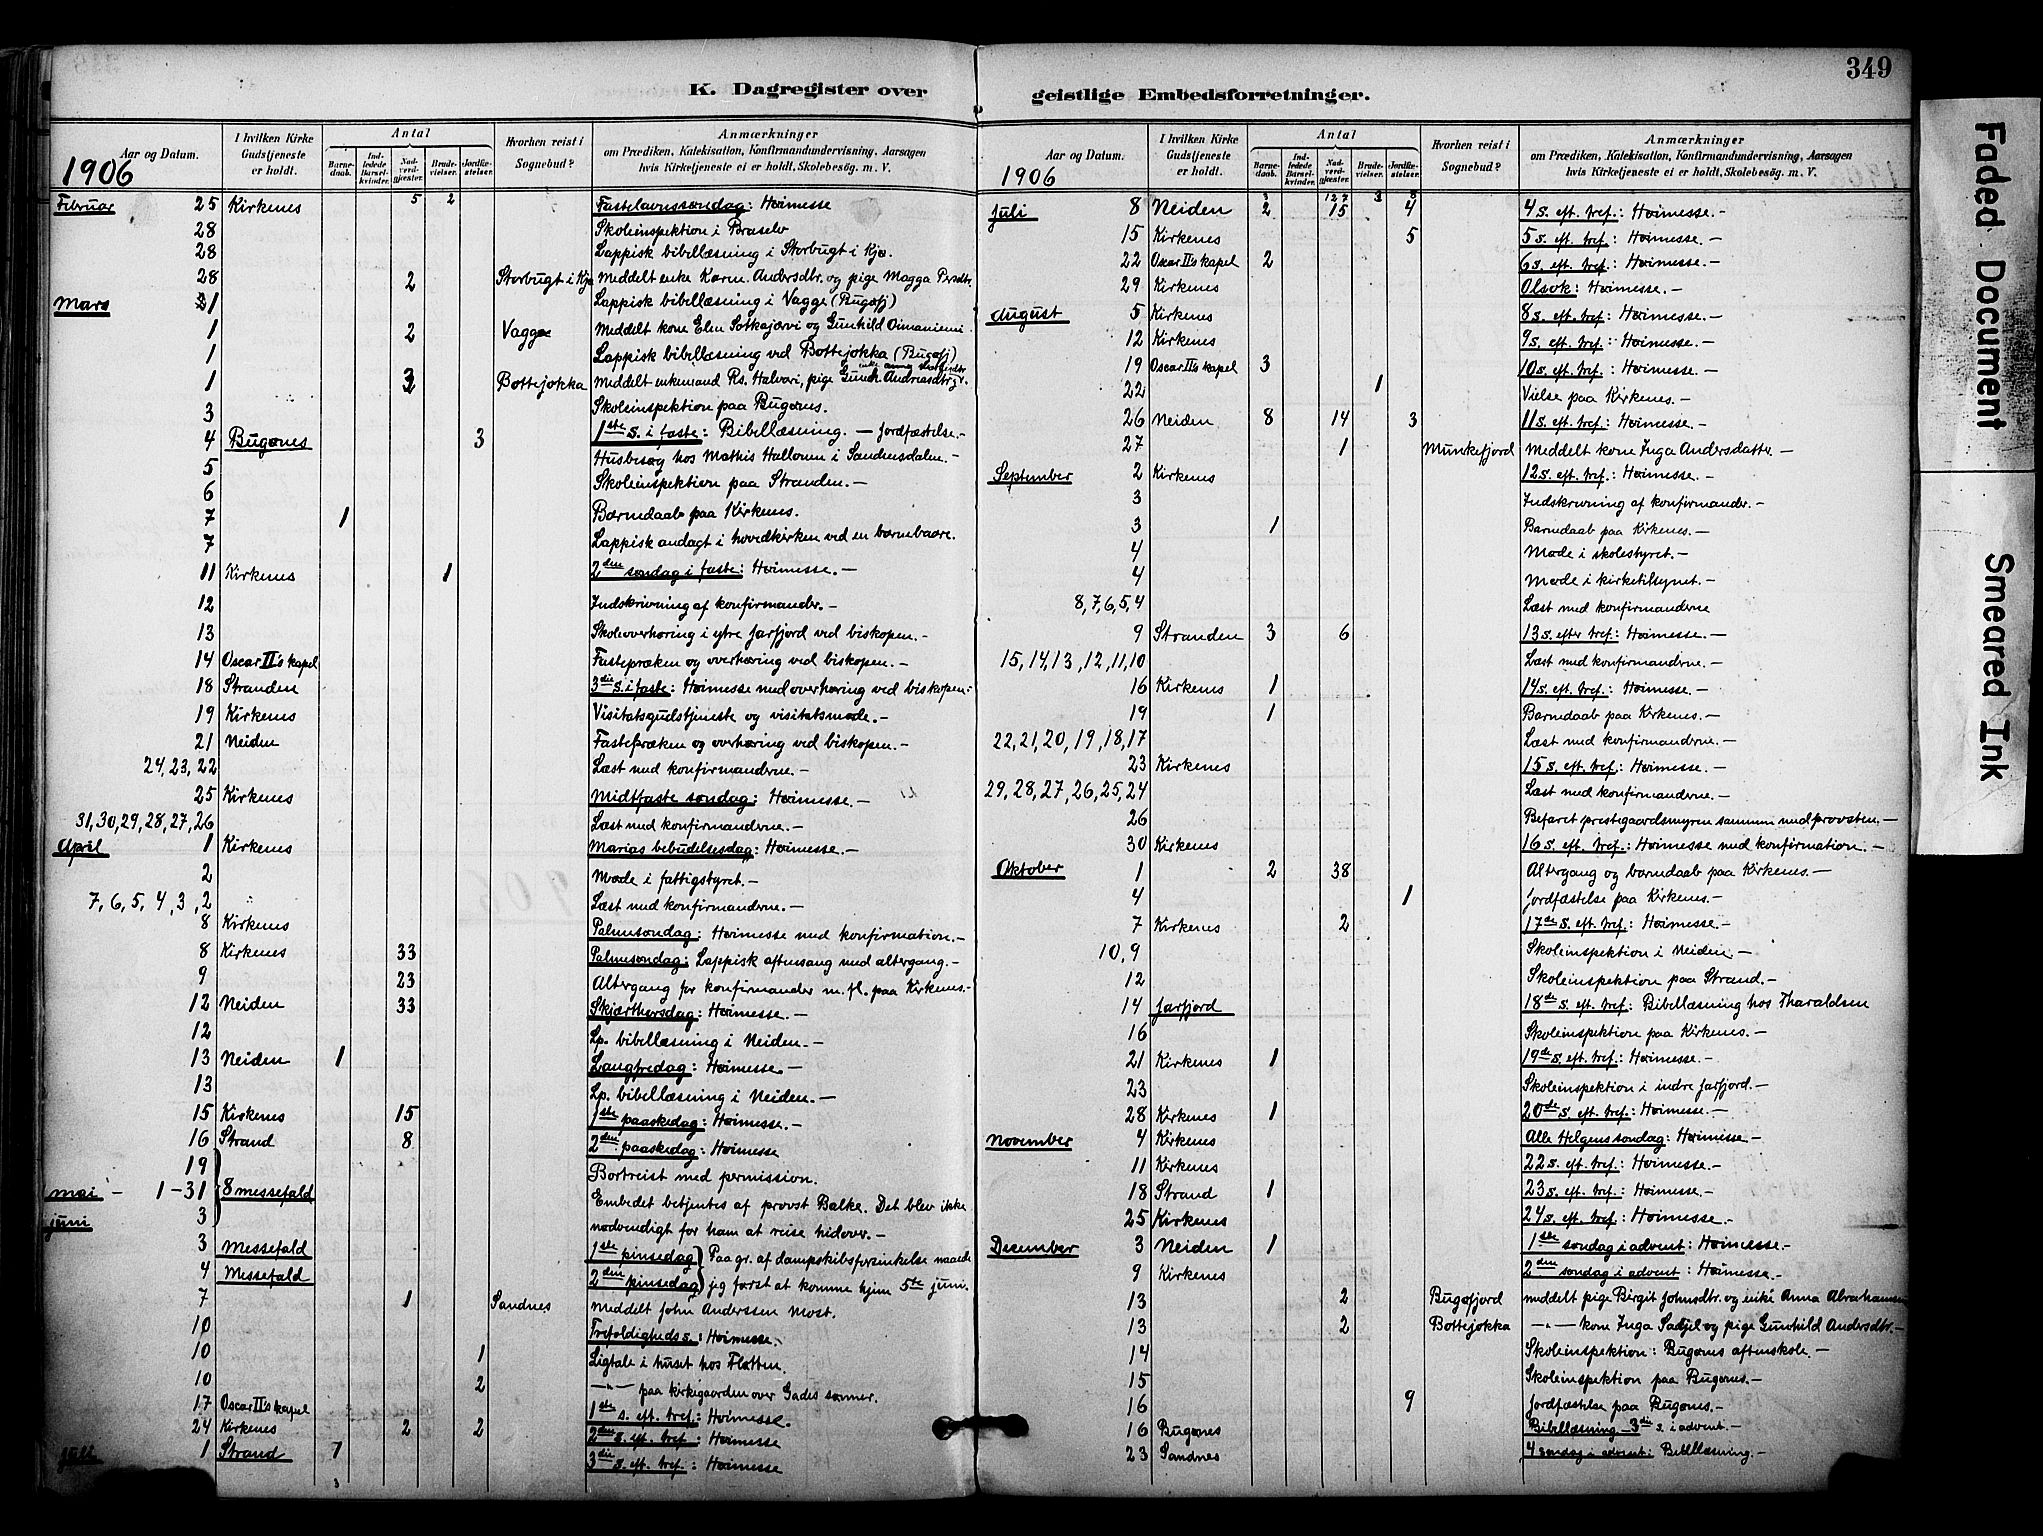 349
K. Dagregister over
geistlige Embedsforretninger.
Aar og Datum.
I hvilken Kirke Gudstjeneste er holdt.
Antal
Barnedaab.
Indledede Barselkvinder.
Nadverdgjæster.
Brudevielser.
Jordfæstelser.
Hvorhen reist i Sognebud?
Anmærkninger
om Prædiken, Katekisation, Konfirmandundervisning, Aarsagen
hvis Kirketjeneste ei er holdt, Skolebesøg. m. V.
1906
Februar 25 Kirkenes 5 2 Fastelavnssøndag: Høimesse
28 Skoleinspektion i Braselv
28 Lappisk bibellæsning i Storbugt i Kjø.
28 2 Storbugt i Kjø Meddelt enke Karen Andersdtr. og pige Magga Persdtr.
Mars 1 Lappisk bibellæsning i Vagge (Bugøfj)
1 2 Vagge Meddelt kone Elen Sotkajærvi og Gunhild Oimaniemi.
1 Lappisk bibellæsning ved Bottejokka (Bugøfj)
1 3 Bottejokka Meddelt enkemand Rs. Halvari, pige Gunh. Andriasdtr.
3 Skoleinspektion paa Bugønes.
4 Bugønes 3 1ste s. i faste: Bibellæsning. — Jordfæstelse.-
5 Husbesøg hos Mathis Hallonen i Sandnesdalen.-
6 Skoleinspektion paa Stranden.-
7 1 Barndaab paa Kirkenes.
7 Lappisk andagt i hovedkirken ved en barnebaare.
11 Kirkenes 1 2den søndag i faste: Høimesse.-
12 Indskrivning af konfirmander.-
13 Skoleoverhøring i ytre Jarfjord ved biskopen.-
14 Oscar II's kapel Fastepræken og overhøring ved biskopen.-
18 Stranden 3die s. i faste: Høimesse med overhøring ved biskopen.-
19 Kirkenes Visitatsgudstjeneste og visitatsmøde.-
21 Neiden Fastepræken og overhøring ved biskopen.-
24, 23, 22 Læst med konfirmanderne.-
25 Kirkenes Midtfaste søndag: Høimesse.-
31, 30, 29, 28, 27, 26 Læst med konfirmanderne.-
April 1 Kirkenes Marias bebudelsesdag: Høimesse.-
2 Møde i fattigstyret.-
7, 6, 5, 4, 3, 2 Læst med konfirmanderne.-
8 Kirkenes Palmesøndag: Høimesse med konfirmation.-
8 Kirkenes 33 Palmesøndag: Lappisk aftensang med altergang.-
9 23 Altergang for konfirmander m. fl. paa Kirkenes.-
12 Neiden 33 Skjærthorsdag: Høimesse.-
12 Lp. bibellæsning i Neiden.-
13 Neiden 1 Langfredag: Høimesse.-
13 Lp. bibellæsning i Neiden.-
15 Kirkenes 15 1ste paaskedag: Høimesse.-
16 Strand 8 2den paaskedag: Høimesse
19 Bortreist med permission.
Mai - 1-31 8 messefald Embedet betjentes af provst Balke. Det blev ikke
Juni 3 nødvendigt for ham at reise hidover.-
3 Messefald 1ste pinsedag } Paa gr. af dampskibsforsinkelse naaede
4 Messefald 2den pinsedag } jeg først at komme hjem 5te juni.
7 1 Sandnes Meddelt John Anderssen Most.
10 Trefoldigheds s.: Høimesse.
10 1 Ligtale i huset hos Flatten.
10 2 —"— paa kirkegaarden over Gades sønner.
17 Oscar II's kapel 1ste s. eft. tref.: Høimesse.
24 Kirkenes 2 2 2den s. eft. tref.: Høimesse
Juli 1 Strand 7 3die s. eft. tref.: Høimesse
3
Aar og Datum.
I hvilken Kirke Gudstjeneste er holdt.
Antal
Barnedaab.
Indledede Barselkvinder.
Nadverdgjæster.
Brudevielser.
Jordfæstelser.
Hvorhen reist i Sognebud?
Anmærkninger
om Prædiken, Katekisation, Konfirmandundervisning, Aarsagen
hvis Kirketjeneste ei er holdt, Skolebesøg. m. V.
1906
3 127 3 8
Juli 8 Neiden 2 15 4 4 s. eft. tref.: Høimesse.-
15 Kirkenes 5 5 s. eft. tref.: Høimesse.-
22 Oscar II's kapel 2 6 s. eft. tref.: Høimesse.-
29 Kirkenes Olsok: Høimesse.-
August 5 Kirkenes 8 s. eft. tref.: Høimesse.-
12 Kirkenes 9 s. eft. tref.: Høimesse.-
19 Oscar II's kapel 3 10 s. eft. tref.: Høimesse.-
22 1 Vielse paa Kirkenes.-
26 Neiden 8 14 3 11 s. eft. tref.: Høimesse.-
27 1 Munkefjord Meddelt kone Inga Andersdatter.-
September 2 Kirkenes 12 s. eft. tref.: Høimesse.-
3 Indskrivning af konfirmander.-
3 1 Barndaab paa Kirkenes.-
4 Møde i skolestyret.-
4 Møde i kirketilsynet.-
8, 7, 6, 5, 4 Læst med konfirmanderne
9 Stranden 3 6 13 s. efter tref.: Høimesse.-
15, 14, 13, 12, 11, 10 Læst med konfirmanderne.-
16 Kirkenes 1 14 s. eft. tref.: Høimesse.-
19 1 Barndaab paa Kirkenes.-
22, 21, 20, 19, 18, 17 Læst med konfirmanderne.-
23 Kirkenes 15 s. eft. tref.: Høimesse.-
29, 28, 27, 26, 25, 24 Læst med konfirmanderne.-
26 Befaret prestegaardsmyren sammen med provsten.-
30 Kirkenes 16 s. eft. tref.: Høimesse med konfirmation.-
Oktober 1 2 38 Altergang og barndaab paa Kirkenes.-
4 1 Jordfæstelse paa Kirkenes.-
7 Kirkenes 2 17de s. eft. tref.: Høimesse.-
10, 9 Skoleinspektion i Neiden.-
12 Skoleinspektion paa Strand.-
14 Jarfjord 18de s. eft. tref.: Bibellæsning hos Tharaldsen
16 Skoleinspektion paa Kirkenes.-
21 Kirkenes 1 19de s. eft. tref.: Høimesse.-
23 Skoleinspektion i indre Jarfjord.-
28 Kirkenes 1 20de s. eft. tref.: Høimesse.-
November 4 Kirkenes Alle Helgens søndag: Høimesse.-
11 Kirkenes 22 s. eft. tref.: Høimesse.-
18 Strand 1 23 s. eft. tref.: Høimesse.-
25 Kirkenes 24 s. eft. tref.: Høimesse.-
December 3 Neiden 1 1ste søndag i advent: Høimesse.-
9 Kirkenes 2den søndag i advent: Høimesse.-
13 2 Bugøfjord Meddelt pige Birgit Johnsdtr. og enke Anna Abrahamsen
13 2 Bottejokka —"— kone Inga Sadjel og pige Gunhild Andersdtr.-
14 Skoleinspektion: Bugønes aftenskole.-
15 Skoleinspektion paa Bugønes.-
16 9 Jordfæstelse paa Bugønes.-
16 Bugønes Bibellæsning - 3die s. i advent.-
23 Sandnes 4 søndag i advent: Bibellæsning.-
Faded Document
Smeared Ink